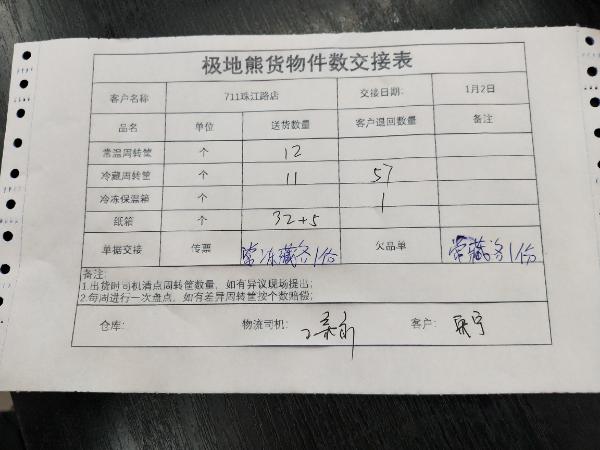 极地熊货物件数交接表
客户名称 711珠江路店 交接日期: 1月2日
品名 单位 送货数量 客户退回数量 备注
常温周转筐 个 12
冷藏周转筐 个 11 57
冷冻保温箱 个 1
纸箱 个 32+5
单据交接 传票 常冻藏各1份 欠品单 常藏各1份
备注:
1.出货时司机清点周转筐数量,如有异议现场提出;
2.每周进行一次盘点,如有差异周转筐按个数赔偿;
仓库: 物流司机: 客户: